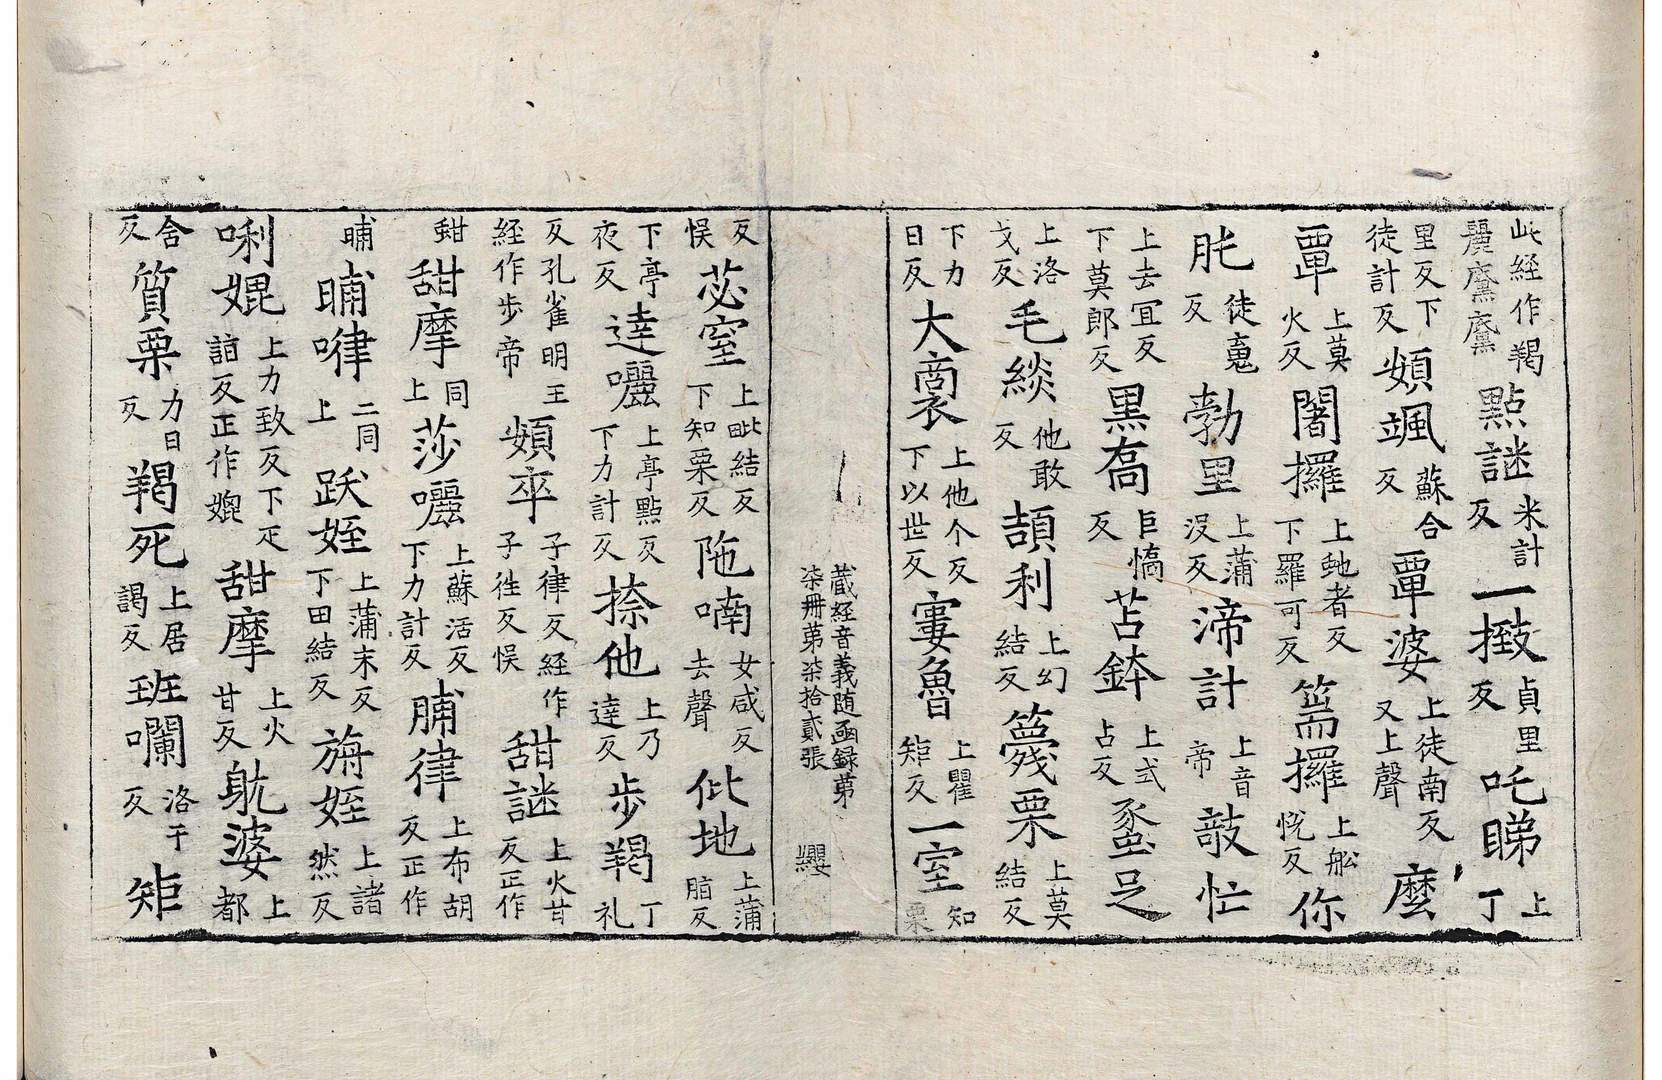 此経作羯麗䵩䵩點謎米計反一撳貞里反吒睇上丁
里反下徒計反頞颯蘇合反覃婆上徒南反又上聲麼
覃上莫火反闍攞上虵者反下羅可反篅攞上舩悦反你
肶徒嵬反勃里上蒲没反渧計上音帝敲忙
上去宜反下莫郎反黒喬巨憍反苫鉢上式占反蛋足
上洛戈反毛緂他敢反頡利上幻結反篾栗上莫結反
下力日反大裔上他个反下以世反寠魯上瞿矩反一窒知栗
蔵経音義随函録第柒冊苐柒拾貳張 纓
反悮苾窒上毗結反下知栗反陁喃女咸反去聲仳地上蒲脂反
下亭夜反達囇上亭點反下力計反捺他上乃達反步羯丁礼
反孔雀明王経作步帝頞卒子律反経作子徃反悮甜謎上火甘反正作
鉗甜摩同上莎囇上蘇活反下力計反脯律上布胡反正作
晡晡嵂二同上跃姪上蒲末反下田結反旃姪上諸然反
唎媲上力致反下疋詣反正作媲甜摩上火甘反躭婆上都
舍反質栗力日反羯死上居謁反班囒洛干反矩